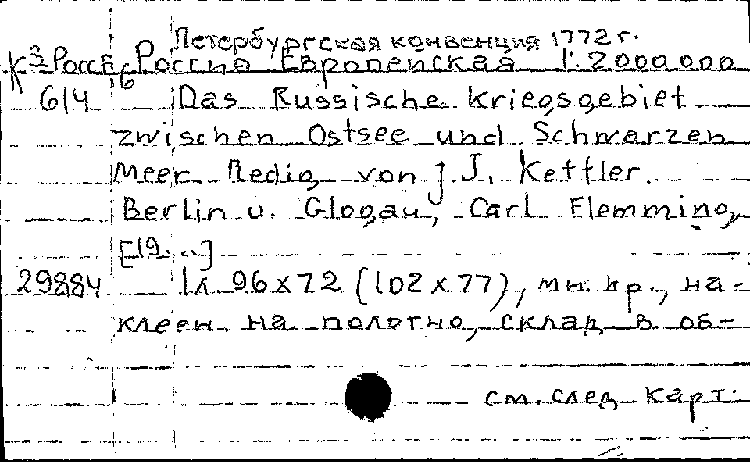 Петербургская конвенция 1772 г.
К 3-Росс 6 Россия Европейская 1:2000000
6/4 Das Russische Kriegsgebiet
zwischen Ostsee und Schwarzen
Meer. Redig von J. J. Kettler.
Berlin u. Glogau, Carl Flemming,
[19...]
29884 1 л 96 x 72 (102 x 77), мн. кр., на-
клеен на полотно, склад в об-
см. след карт.